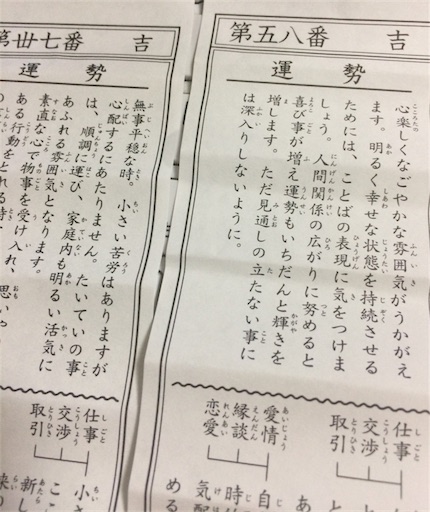 第五八番 吉
運勢
心楽しくなごやかな雰囲気がうかがえ
ます。明るく幸せな状態を持続させる
ためには、ことばの表現に気をつけま
しょう。人間関係の広がりに努めると
喜び事が増え運勢もいちだんと輝きを
増します。ただ見通しの立たない事に
は深入りしないように。
仕事
交渉
取引
愛情
縁談
恋愛
自
時
気配
める
第卅七番 吉
運勢
無事平穏な時。小さい苦労はありますが
心配するにあたりません。たいていの事
は、順調に運び、家庭内も明るい活気に
あふれる雰囲気となります。
素直な心で物事を受け入れ、思いや
ある行動をとれる時
仕事
交渉
取引
小さ
ここ
新し
来の